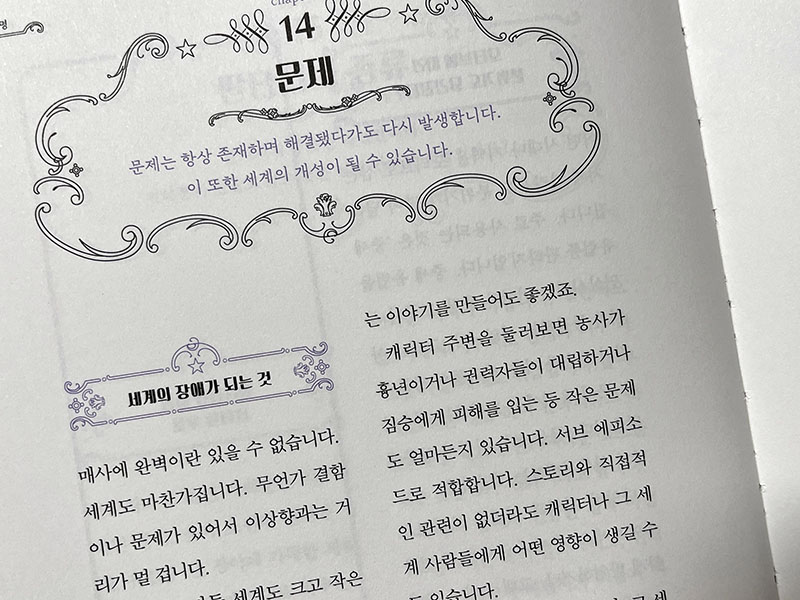 명
14
문제
문제는 항상 존재하며 해결됐다가도 다시 발생합니다.
이 또한 세계의 개성이 될 수 있습니다.
세계의 장애가 되는 것
매사에 완벽이란 있을 수 없습니다.
세계도 마찬가집니다. 무언가 결함
이나 문제가 있어서 이상향과는 거
리가 멀 겁니다.
세계도 크고 작은
는 이야기를 만들어도 좋겠죠.
캐릭터 주변을 둘러보면 농사가
흉년이거나 권력자들이 대립하거나
짐승에게 피해를 입는 등 작은 문제
도 얼마든지 있습니다. 서브 에피소
드로 적합합니다. 스토리와 직접적
인 관련이 없더라도 캐릭터나 그 세
계 사람들에게 어떤 영향이 생길 수
도 있습니다.
그 세